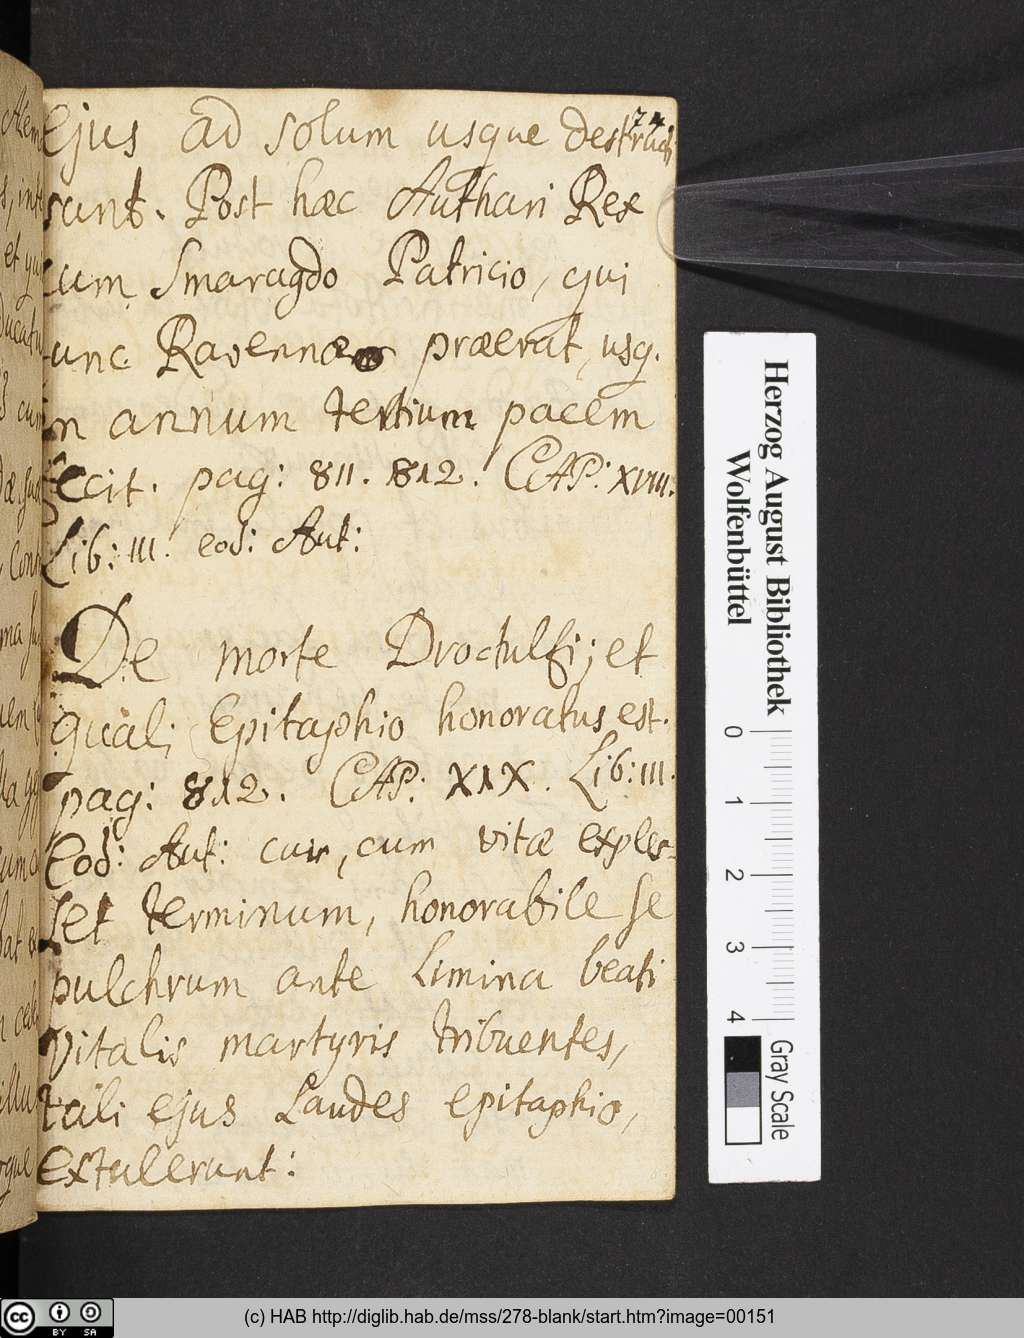 74
Ejus ad solum usque destructi
sunt. Post hæc Authari Rex
cum Smaragdo Patricio, qui
tunc Ravennæ præerat, usq.
in annum tertium pacem
fecit. pag: 811. 812. CAP: XVIII.
Lib: III. eod: Aut:
De morte Droctulfi; et
quali Epitaphio honoratus est.
pag: 812. CAP: XIX. Lib: III.
Eod: Aut: cui, cum vitæ exples-
set terminum, honorabile se
pulchrum ante Limina beati
Vitalis martyris tribuentes,
tali ejus Laudes epitaphio,
extulerunt:
Herzog August Bibliothek
Wolfenbüttel
0 1 2 3 4
Gray Scale
cc BY SA
(c) HAB http://diglib.hab.de/mss/278-blank/start.htm?image=00151